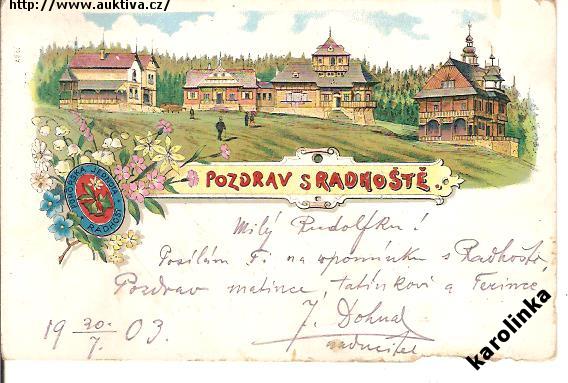 http://www.auktiva.cz/
POZDRAV S RADHOŠTĚ.
POHORSKÁ JEDNOTA
RADHOŠŤ
Milý Rudolfku!
Posílám Ti na wpomínku s Radhoště,
Pozdrav matince, tatínkovi a Ferince,
J. Dohnal
nadučitel
19 30./7. 03.
karolinka